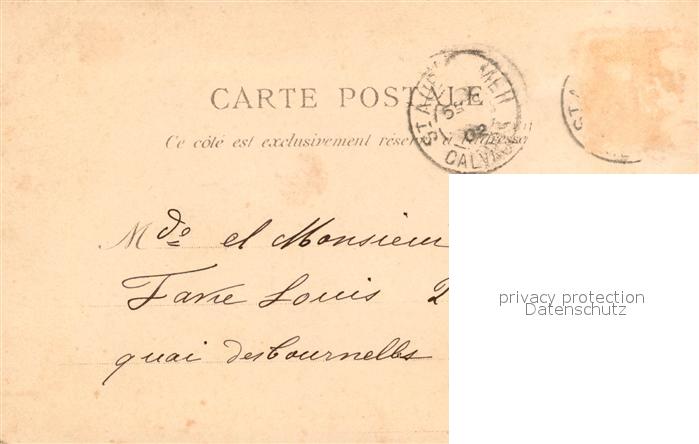 CARTE POSTALE
Ce côté est exclusivement réservé à l'adresse
ST AUBIN MER
CALVADOS
02
ST A
Mde et Monsieur
Louis
quai des tournelles
privacy protection
Datenschutz